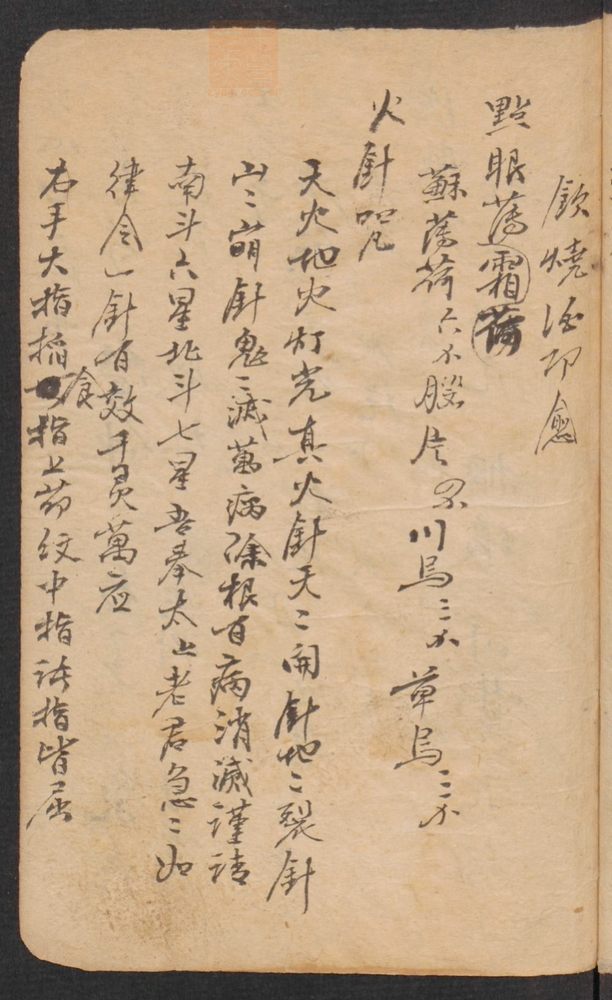 飲燒酒即愈
點眼薄霜荷
蘇薄荷六分 膠片 川烏三分 草烏三分
火針咒
天火地火灯光真火針天〻開針地〻裂針
山〻崩針鬼〻滅萬病除根百病消滅謹請
南斗六星北斗七星吾奉太上老君急〻如
律令一針百效千灵萬应
右手大指掐食指上节紋中指诸指皆屈